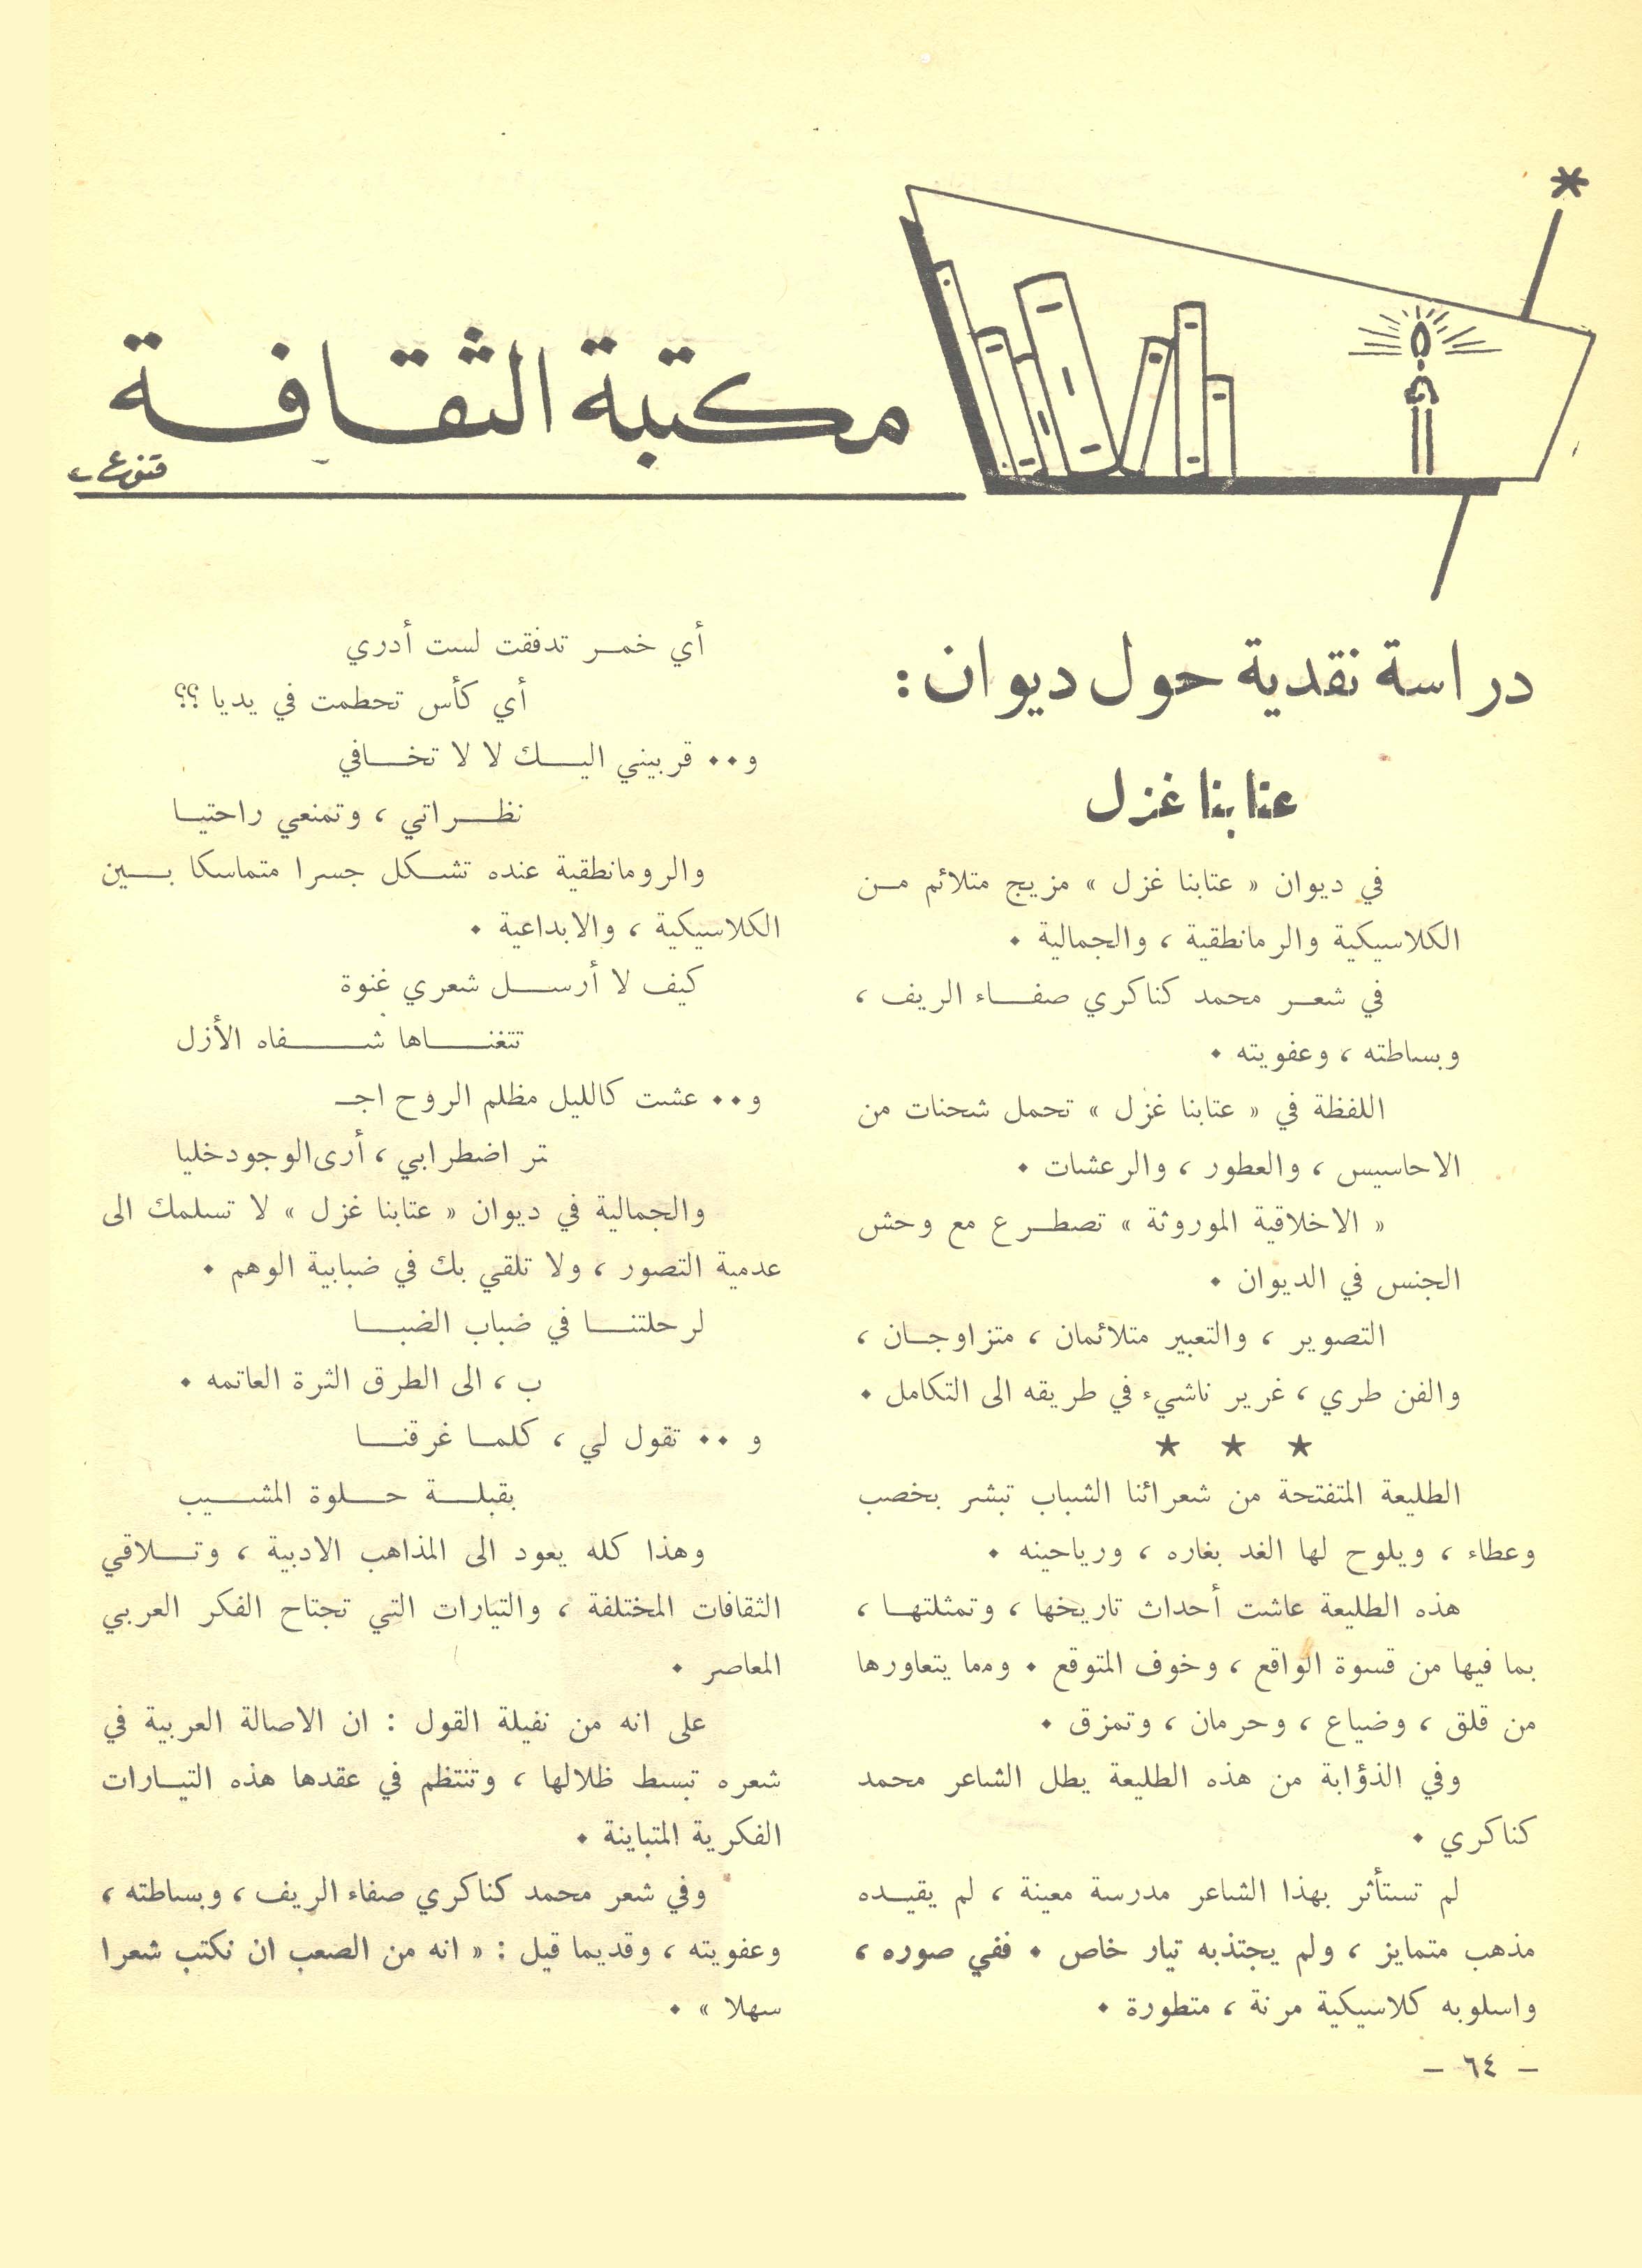 مكتبة الثقافة
دراسة نقدية حول ديوان :
عتابنا غزل
في ديوان « عتابنا غزل » مزيج متلائم من
الكلاسيكية والرمانطقية ، والجمالية ٠
في شعر محمد كناكري صفاء الريف ،
وبساطته ، وعفويته ٠
اللفظة في « عتابنا غزل » تحمل شحنات من
الاحاسيس ، والعطور ، والرعشات ٠
« الاخلاقية الموروثة » تصطرع مع وحش
الجنس في الديوان ٠
التصوير ، والتعبير متلائمان ، متزاوجان ،
والفن طري ، غرير ناشيء في طريقه الى التكامل ٠
★ ★ ★
الطليعة المتفتحة من شعرائنا الشباب تبشر بخصب
وعطاء ، ويلوح لها الغد بغاره ، ورياحينه ٠
هذه الطليعة عاشت أحداث تاريخها ، وتمثلتها ،
بما فيها من قسوة الواقع ، وخوف المتوقع ٠ ومما يتعاورها
من قلق ، وضياع ، وحرمان ، وتمزق ٠
وفي الذؤابة من هذه الطليعة يطل الشاعر محمد
كناكري ٠
لم تستأثر بهذا الشاعر مدرسة معينة ، لم يقيده
مذهب متمايز ، ولم يجتذبه تيار خاص ٠ ففي صوره ،
واسلوبه كلاسيكية مرنة ، متطورة ٠
أي خمر تدفقت لست أدري
أي كأس تحطمت في يديا ؟؟
و٠٠ قربيني اليك لا لا تخافي
نظراتي ، وتمنعي راحتيا
والرومانطقية عنده تشكل جسرا متماسكا بين
الكلاسيكية ، والابداعية ٠
كيف لا أرسل شعري غنوة
تتغناها شفاه الأزل
و٠٠ عشت كالليل مظلم الروح اجـ
تر اضطرابي ، أرى الوجود خليا
والجمالية في ديوان « عتابنا غزل » لا تسلمك الى
عدمية التصور ، ولا تلقي بك في ضبابية الوهم ٠
لرحلتنا في ضباب الضبا
ب ، الى الطرق الثرة العاتمه ٠
و ٠٠ تقول لي ، كلما غرقنا
بقبلة حلوة المشيب
وهذا كله يعود الى المذاهب الادبية ، وتلاقي
الثقافات المختلفة ، والتيارات التي تجتاح الفكر العربي
المعاصر ٠
على انه من نفيلة القول : ان الاصالة العربية في
شعره تبسط ظلالها ، وتنتظم في عقدها هذه التيارات
الفكرية المتباينة ٠
وفي شعر محمد كناكري صفاء الريف ، وبساطته ،
وعفويته ، وقديما قيل : « انه من الصعب ان نكتب شعرا
سهلا » ٠
– ٦٤ –